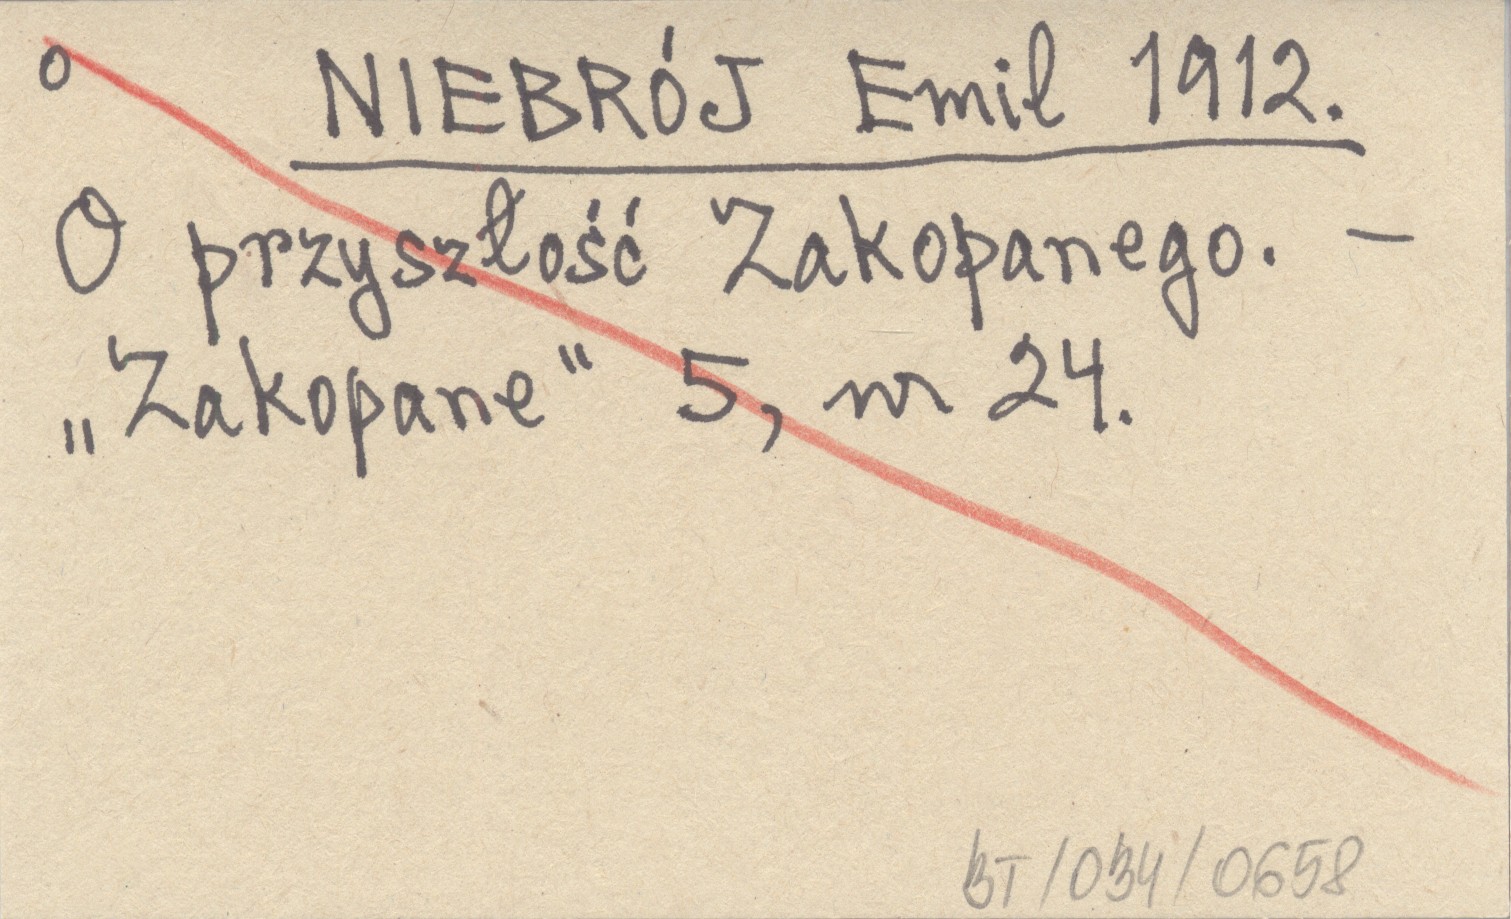 o NIEBRÓJ Emil 1912.
O przyszłość Zakopanego. —
„Zakopane" 5, nr 24.
BT/034/0658